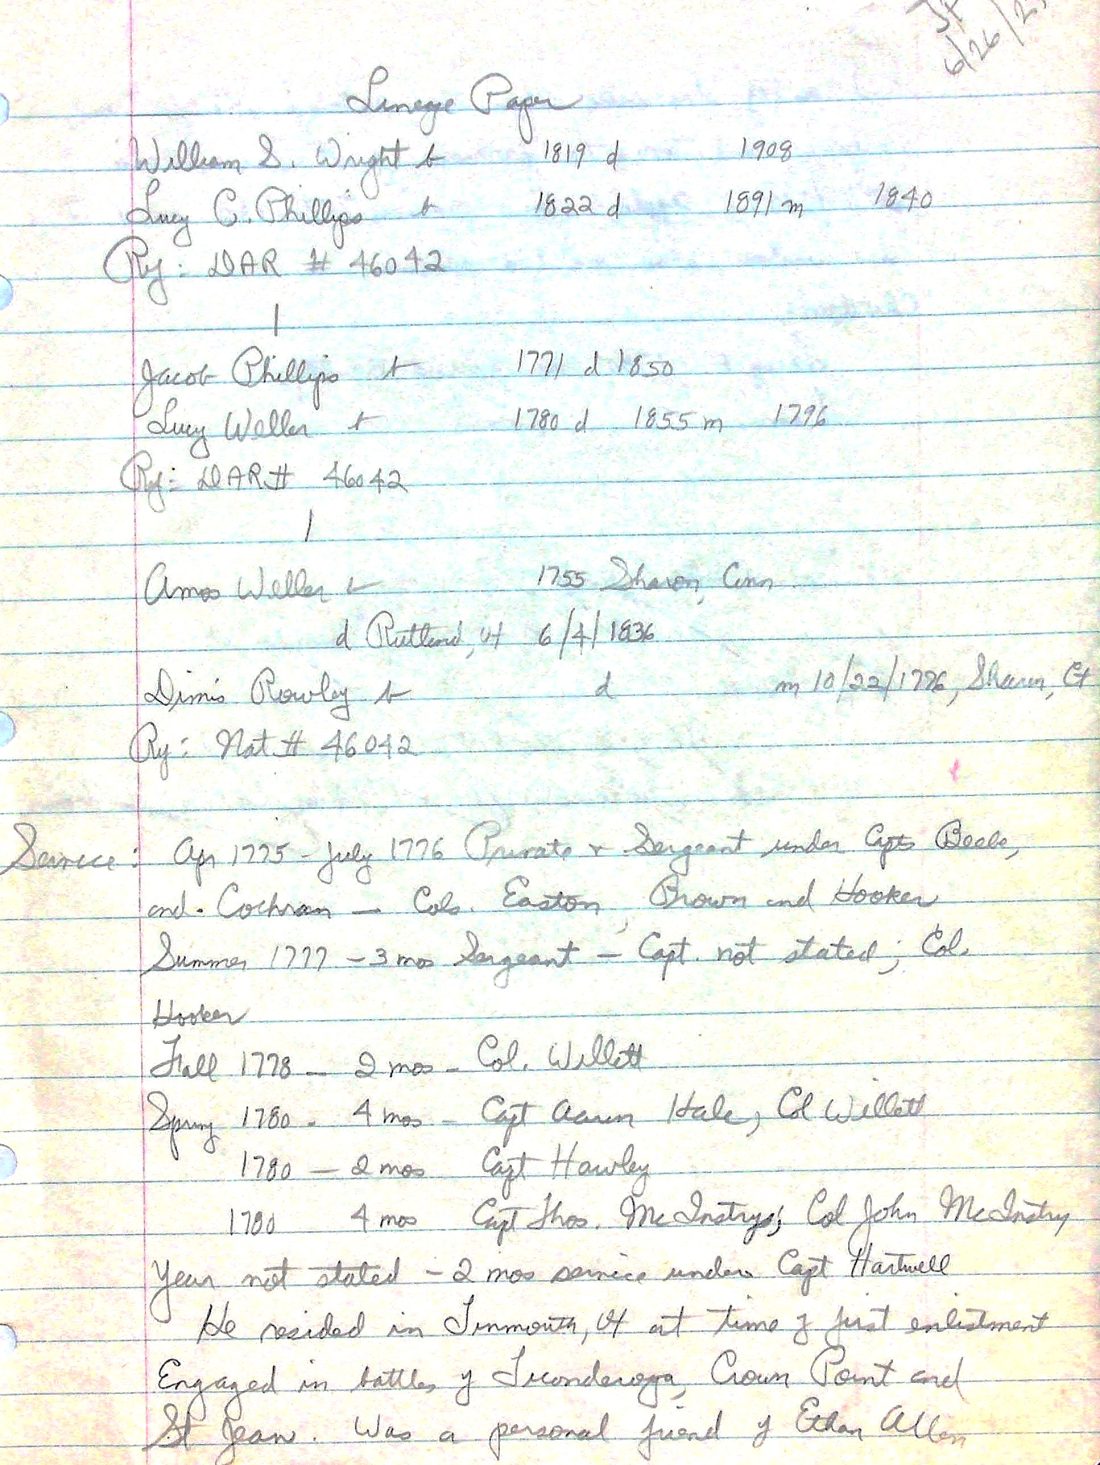 6/26/
Lineage Paper
William S. Wright b 1819 d 1908
Lucy C. Phillips b 1822 d 1891 m 1840
Ry: DAR # 46042
Jacob Phillips b 1771 d 1850
Lucy Weller b 1780 d 1855 m 1796
Ry: DAR # 46042
Amos Weller b 1755 Sharon, Conn
d Rutland, Vt 6/4/1836
Dimis Rowley b d m 10/22/1776, Sharon, Ct
Ry: Nat # 46042
Service: Apr 1775 - July 1776 Private + Sergeant under Capts Beebe,
and. Cochran — Cols. Easton, Brown and Hooker
Summer 1777 - 3 mos Sergeant - Capt. not stated; Col.
Hooker
Fall 1778 - 2 mos - Col. Willett
Spring 1780 - 4 mos - Capt Aaron Hale, Col Willett
1780 - 2 mos Capt Hawley
1780 4 mos Capt Thos. McInstry; Col John McInstry
Year not stated - 2 mos service under Capt Hartwell
He resided in Tinmouth, Vt at time of first enlistment
Engaged in battles of Ticonderoga, Crown Point and
St Jean. Was a personal friend of Ethan Allen